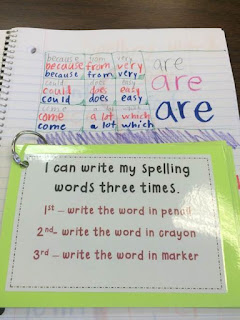 because from very are
because from very
because from very are
could does easy
could does easy are
could does easy
come a lot which
come a lot which
come a lot which
I can write my spelling
words three times.
1st - write the word in pencil
2nd- write the word in crayon
3rd - write the word in marker